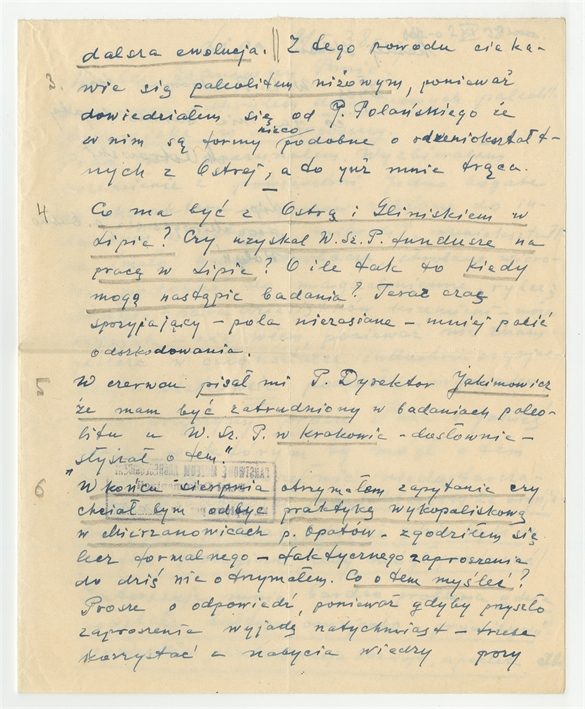 dalsza ewolucja. || Z tego powodu cieka-
3. wię się paleolitem niżowym, ponieważ
dowiedziałem się od P. Polańskiego że
w nim są formy nieco podobne o rdzeniokształt-
nych z Ostrej, a to już mnie trąca.
4 Co ma być z Ostrą i Glińskiem w
Lipie? Czy uzyskał W. Sz. P. fundusze na
pracę w Lipie? O ile tak to kiedy
mogą nastąpić badania? Teraz czas
sporzyjający – pola niezasiane – mniej płacić
odszkodowania.
5 W czerwcu pisał mi P. Dyrektor Jakimowicz
że mam być zatrudniony w badaniach paleo-
litu u W. Sz. P. w Krakowie – dosłownie –
„słyszał o tem."
6 W końcu sierpnia otrzymałem zapytanie czy
chciałbym odbyć praktykę wykopaliskową
w Mierzanowicach p. Opatów – zgodziłem się
lecz formalnego – faktycznego zaproszenia
do dziś nie otrzymałem. Co o tem myśleć?
Proszę o odpowiedź, ponieważ gdyby przyszło
zaproszenie wyjadę natychmiast – trzeba
korzystać z nabycia wiedzy pory